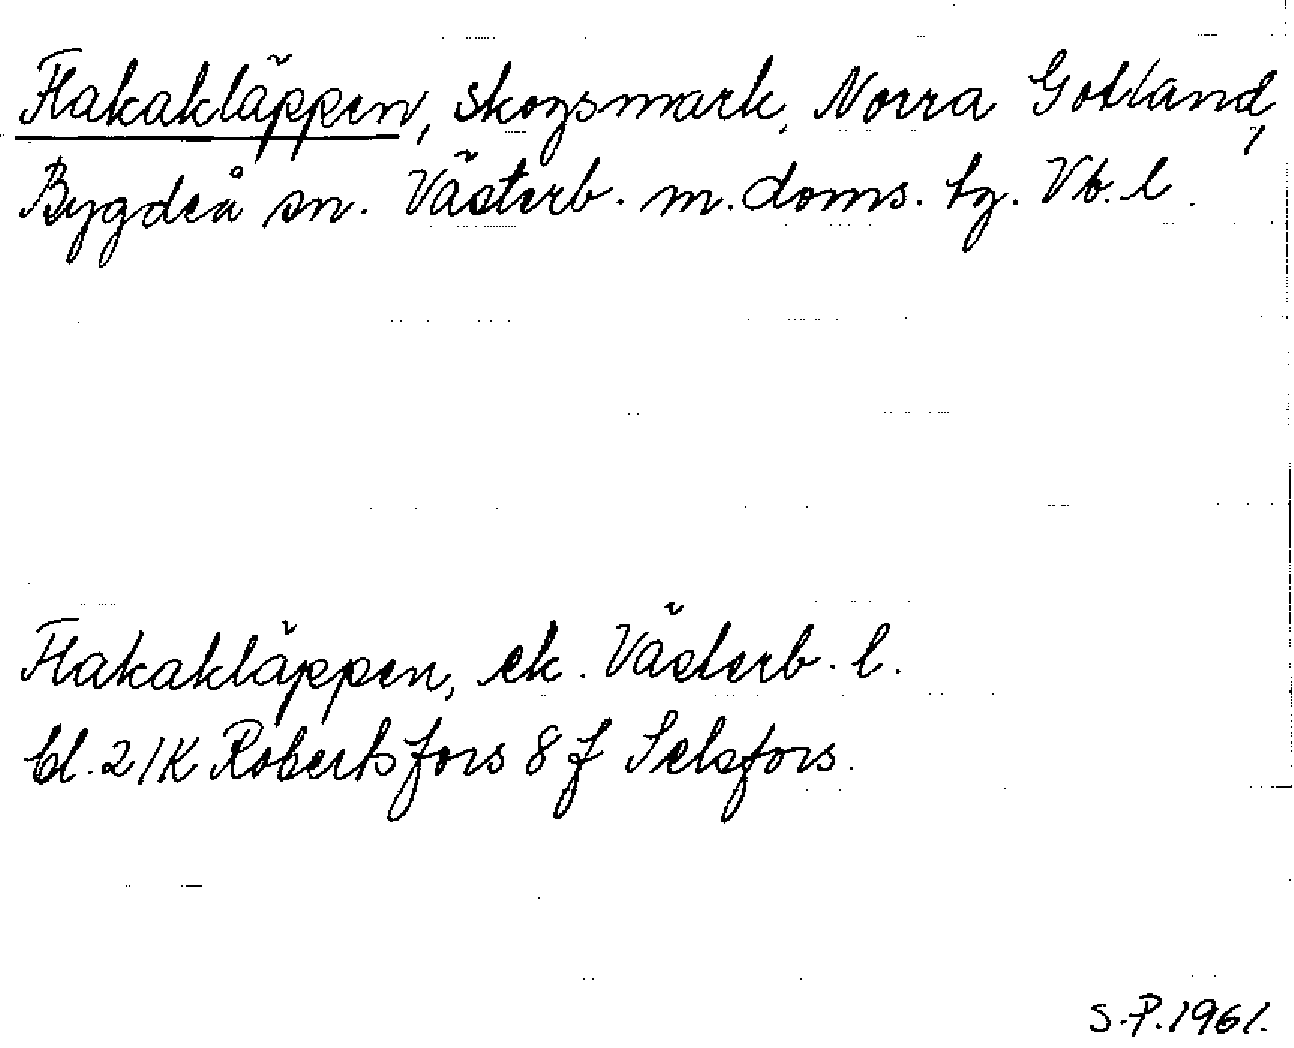 Flakakläppen, skogsmark, Norra Gotland,
Bygdeå sn. Västerb. m. doms. tg. Vb. l.
Flakakläppen, ek. Västerb. l.
bl. 21K Robertsfors 8f Selsfors.
S.P. 1961.